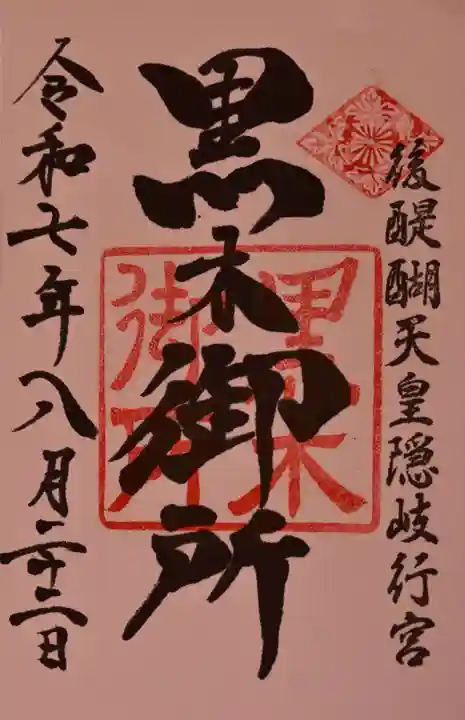 後醍醐天皇隠岐行宮
黒木御所
黒木
御所
令和七年八月二十二日